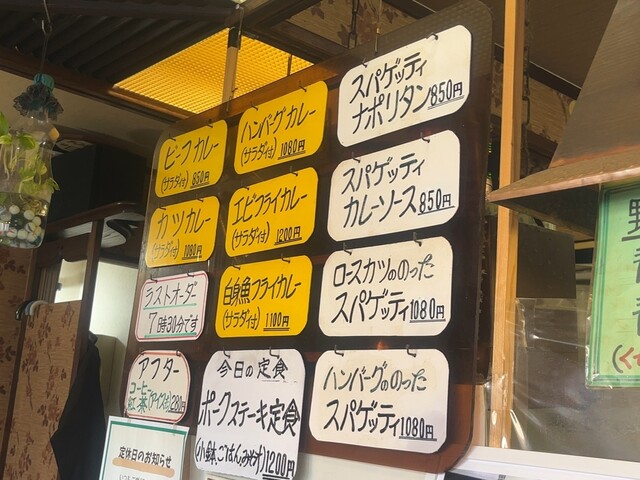 ビーフカレー
(サラダ付) 850円
ハンバーグカレー
(サラダ付) 1080円
スパゲッティ
ナポリタン 850円
カツカレー
(サラダ付) 1080円
エビフライカレー
(サラダ付) 1200円
スパゲッティ
カレーソース 850円
ラストオーダー
7時30分です
白身魚フライカレー
(サラダ付) 1100円
ロースカツののった
スパゲッティ 1080円
アフター
コーヒー
紅茶(アイス込) 280円
今日の定食
ポークステーキ定食
(小鉢、ごはん、みそ汁) 1200円
ハンバーグののった
スパゲッティ 1080円
定休日のお知らせ